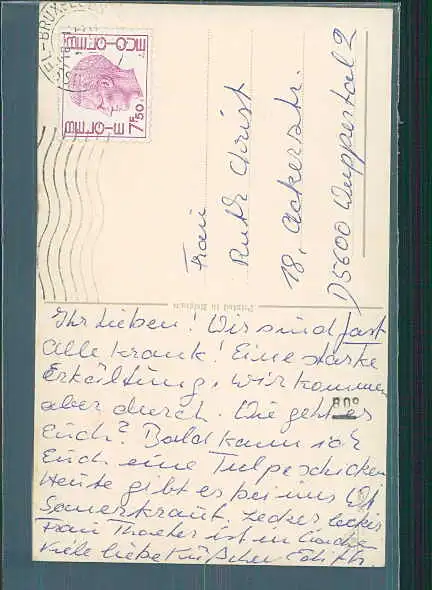 BRUXELLES
BELGIE-BELGIQUE
7F50
Frau
Ruth Christ
18, Ackerstr.
D5600 Wuppertal 2
Printed in Belgium
Ihr Lieben! Wir sind fast
alle krank! Eine starke
Erkältung, wir kommen
aber durch. Wie geht es
809
Euch? Bald kann ich
Euch eine Tulpe schicken
Heute gibt es bei uns
Sauerkraut, lecker lecker
Frau ist in
Viele liebe Küßchen Edith.